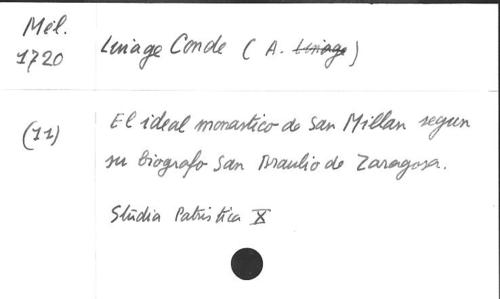 Mél.
1720
Linage Conde ( A. Linage )
(11)
El ideal monastico de San Millan segun
su biografo San Braulio de Zaragosa.
Studia Patristica X